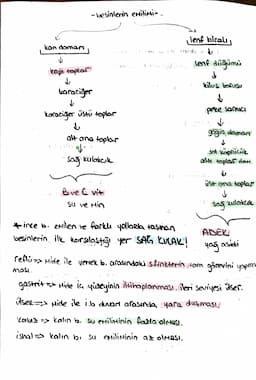 -besinlerin emilimi-
kan damarı
kapı toplar
karaciğer
karaciğer üstü toplar
alt ana toplar
sağ kulakçık
B ve C vit
su ve min
lenf kılcalı
lenf düğümü
kilus borusu
peke sarnıcı
göğüs damarı
sol köprücük
altı toplar dam.
üst ana toplar
sağ kulakçık
ADEK
yağ asidi
*ince b. emilen ve farklı yollarla taşınan
besinlerin ilk karşılaştığı yer SAĞ KULAK!
reflü=> Mide ile yemek b. arasındaki sfinkterin tam görevini yapma
ması.
gastrit=> Mide iç yüzeyinin iltihaplanması. İleri seviyesi ülser.
ülser=> Mide ile i.b duvarı arasında yara oluşması.
kabız=> kalın b. su emiliminin fazla olması.
ishal=> kalın b. su emiliminin az olması.